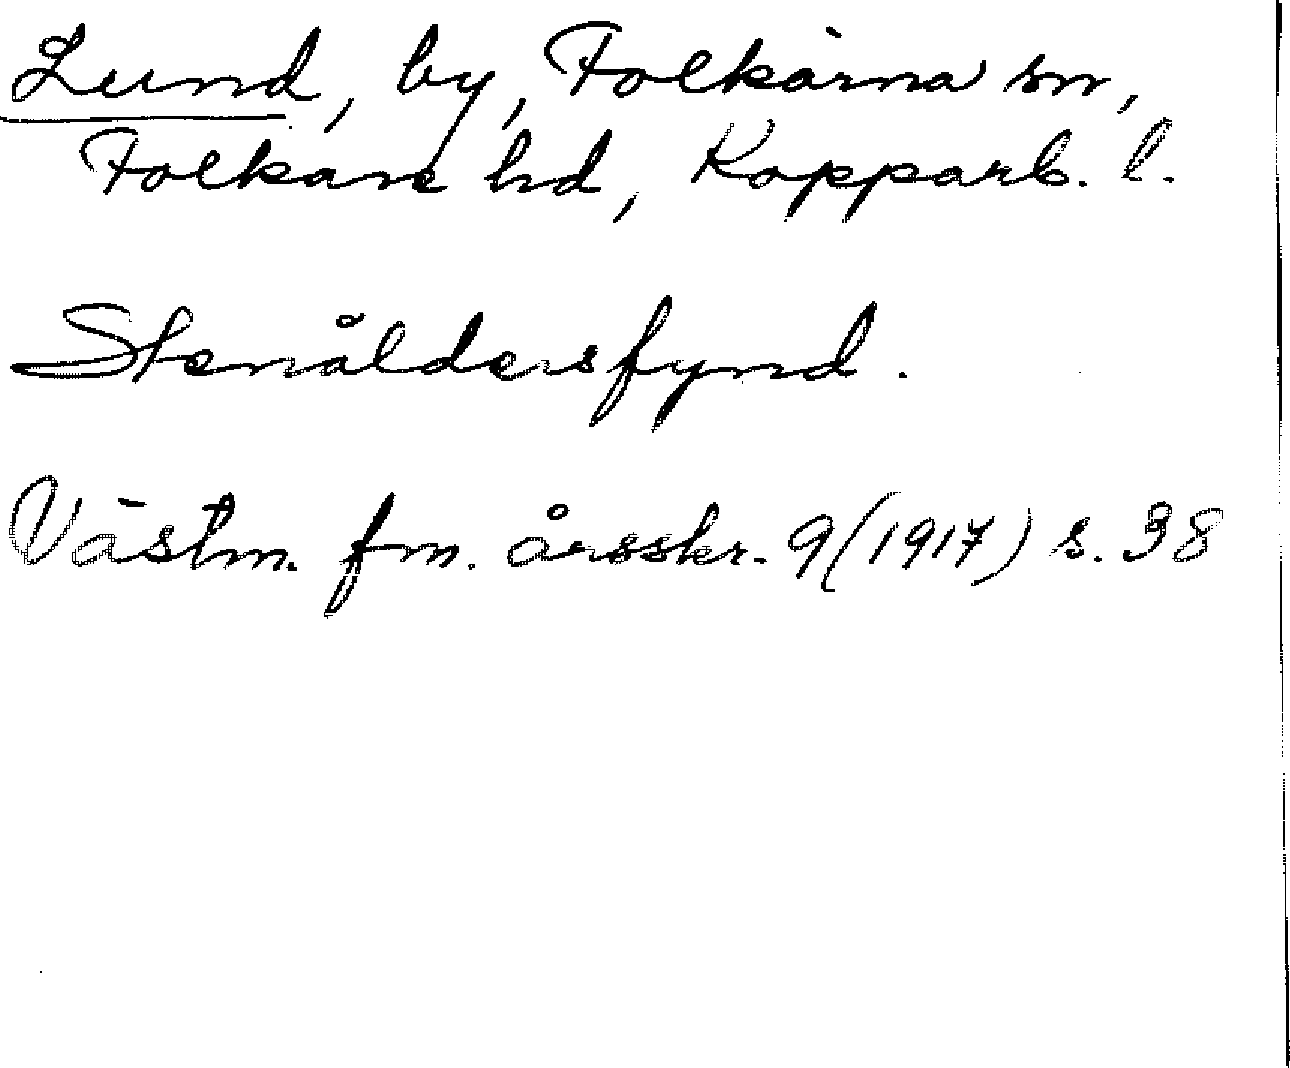 Lund, by, Folkärna sn,
Folkare hd, Kopparb. l.
Stenåldersfynd.
Västm. fm. årsskr. 9 (1917) s. 38